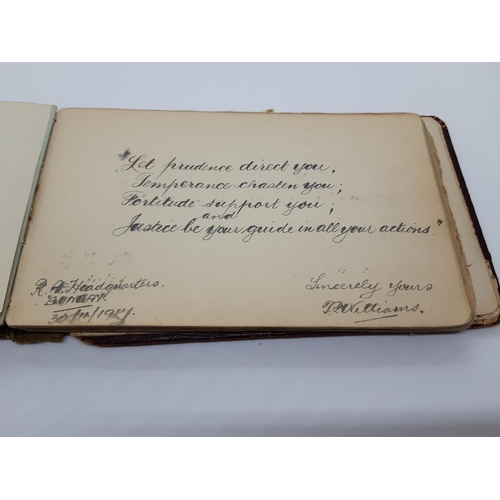 "Let prudence direct you,
Temperance chasten you;
Fortitude support you;
and
Justice be your guide in all your actions."
Sincerely yours
T. Williams.
R. Headquarters.